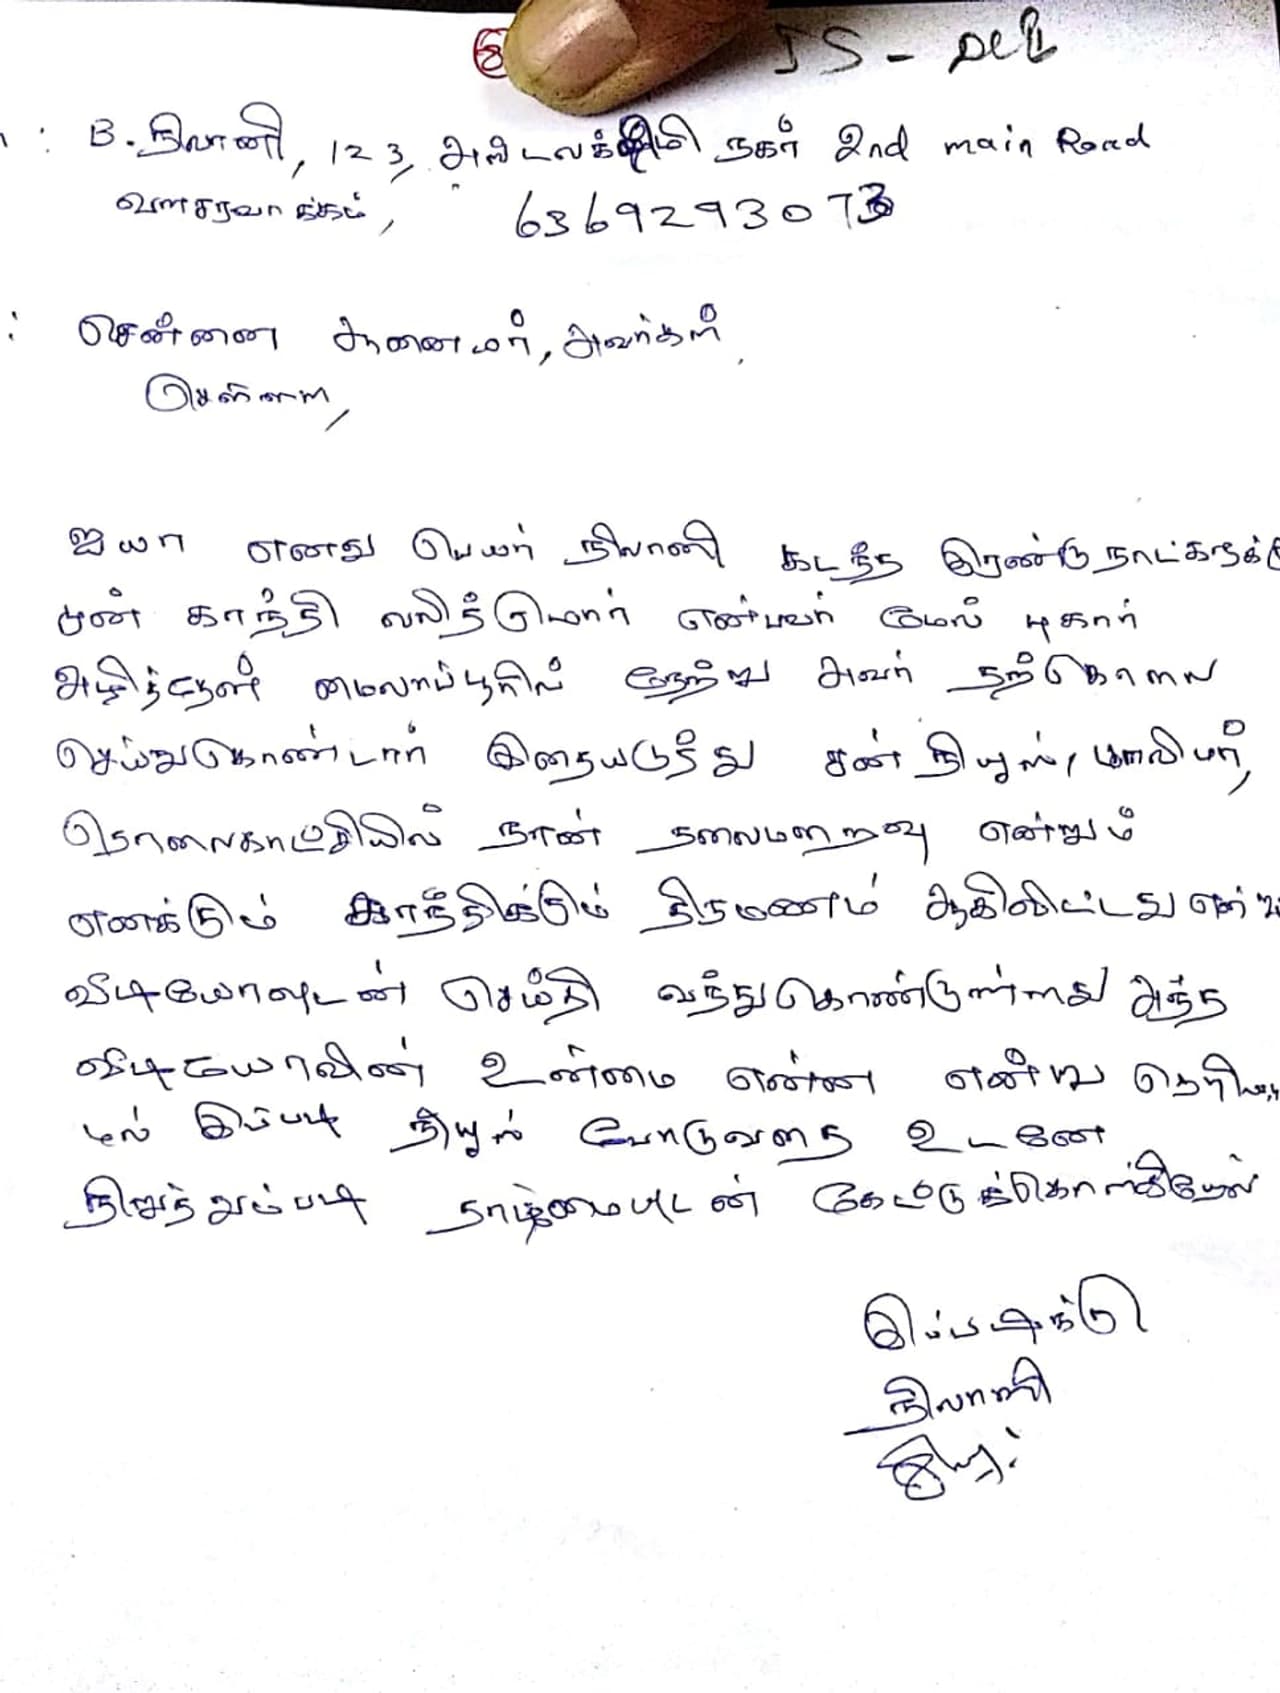 8 IS - DCB
: B. நிலானி, 123, அஷ்டலக்ஷ்மி நகர் 2nd main Road
வளசரவாக்கம், 6369293073
: சென்னை ஆணையர், அவர்கள்,
சென்னை,
ஐயா எனது பெயர் நிலானி கடந்த இரண்டு நாட்களுக்கு
முன் காந்தி லலித்குமார் என்பவர் மேல் புகார்
அழித்தேன் மைலாப்பூரில் நேற்று அவர் தற்கொலை
செய்துகொண்டார் இதையடுத்து சன் நியூஸ், பாலிமர்,
தொலைகாட்சியில் நான் தலைமறைவு என்றும்
எனக்கும் காந்திக்கும் திருமணம் ஆகிவிட்டது என்று
வீடியோவுடன் செய்தி வந்துகொண்டுள்ளது அந்த
வீடியோவின் உண்மை என்ன என்று தெரியா
மல் இப்படி நியூஸ் போடுவதை உடனே
நிறுத்தும்படி தாழ்மையுடன் கேட்டுக்கொள்கிறேன்
இப்படிக்கு
நிலானி